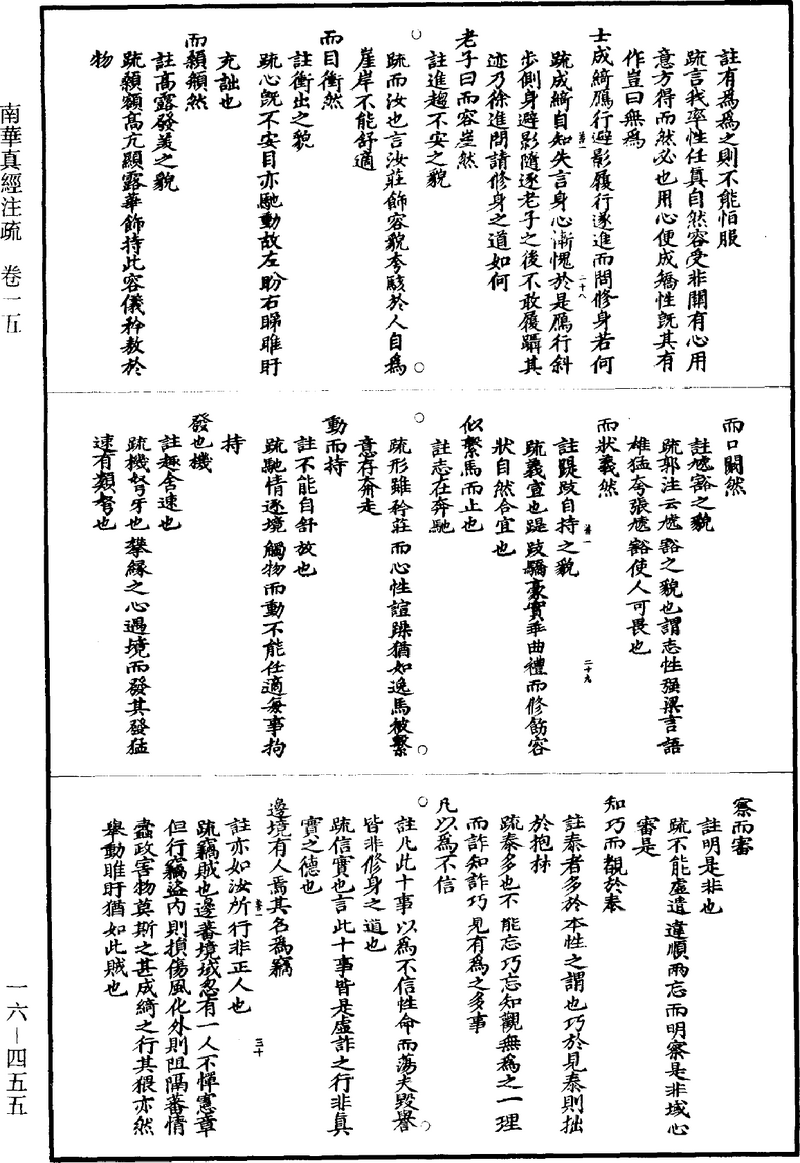 南華真經注疏　卷一五
一六—四五五
註有為為之則不能怕服
疏言我率性任真自然容受非關有心用
意方得而然必也用心便成矯性既其有
作豈曰無為
士成綺鴈行避影履行遂進而問修身若何
疏成綺自知失言身心漸愧於是鴈行斜
步側身避影隨逐老子之後不敢履躡其
迹乃徐進問請修身之道如何
老子曰而容崖然
註進趨不安之貌
疏而汝也言汝莊飾容貌夸駭於人自為
崖岸不能舒適
而目衝然
註衝出之貌
疏心既不安目亦馳動故左盼右睇睢盱
充詘也
而顙頯然
註高露發美之貌
疏顙額高亢顯露華飾持此容儀矜敖於
物
而口闞然
註虓豁之貌
疏郭注云虓豁之貌也謂志性强梁言語
雄猛夸張虓豁使人可畏也
而狀義然
註踶跂自持之貌
疏義宜也踶跂驕豪實乖曲禮而修飾容
狀自然合宜也
似繫馬而止也
註志在奔馳
疏形雖矜莊而心性諠躁猶如逸馬被繫
意存奔走
動而持
註不能自舒放也
疏馳情逐境觸物而動不能任適每事拘
持
發也機
註趣舍速也
疏機弩牙也攀緣之心遇境而發其發猛
速有類弩也
察而審
註明是非也
疏不能虛遣違順兩忘而明察是非域心
審是
知巧而覩於泰
註泰者多於本性之謂也巧於見泰則拙
於抱朴
疏泰多也不能忘巧忘知觀無為之一理
而詐知詐巧見有為之多事
凡以為不信
註凡此十事以為不信性命而蕩夫毀譽
皆非修身之道也
疏信實也言此十事皆是虛詐之行非真
實之德也
邊境有人焉其名為竊
註亦如汝所行非正人也
疏竊賊也邊蕃境域忽有一人不憚憲章
但行竊盜內則損傷風化外則阻隔蕃情
蠹政害物莫斯之甚成綺之行其猥亦然
舉動睢盱猶如此賊也